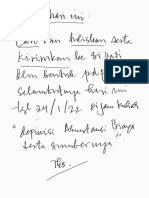 hari ini :
Cari dan tuliskan serta
kirimkan ke si pati
dlm bentuk pdf
selambatnya hari ini
tgl 24/1/22 di jam kuliah
"depinisi Akuntansi Biaya
serta sumbernya"
Tks.